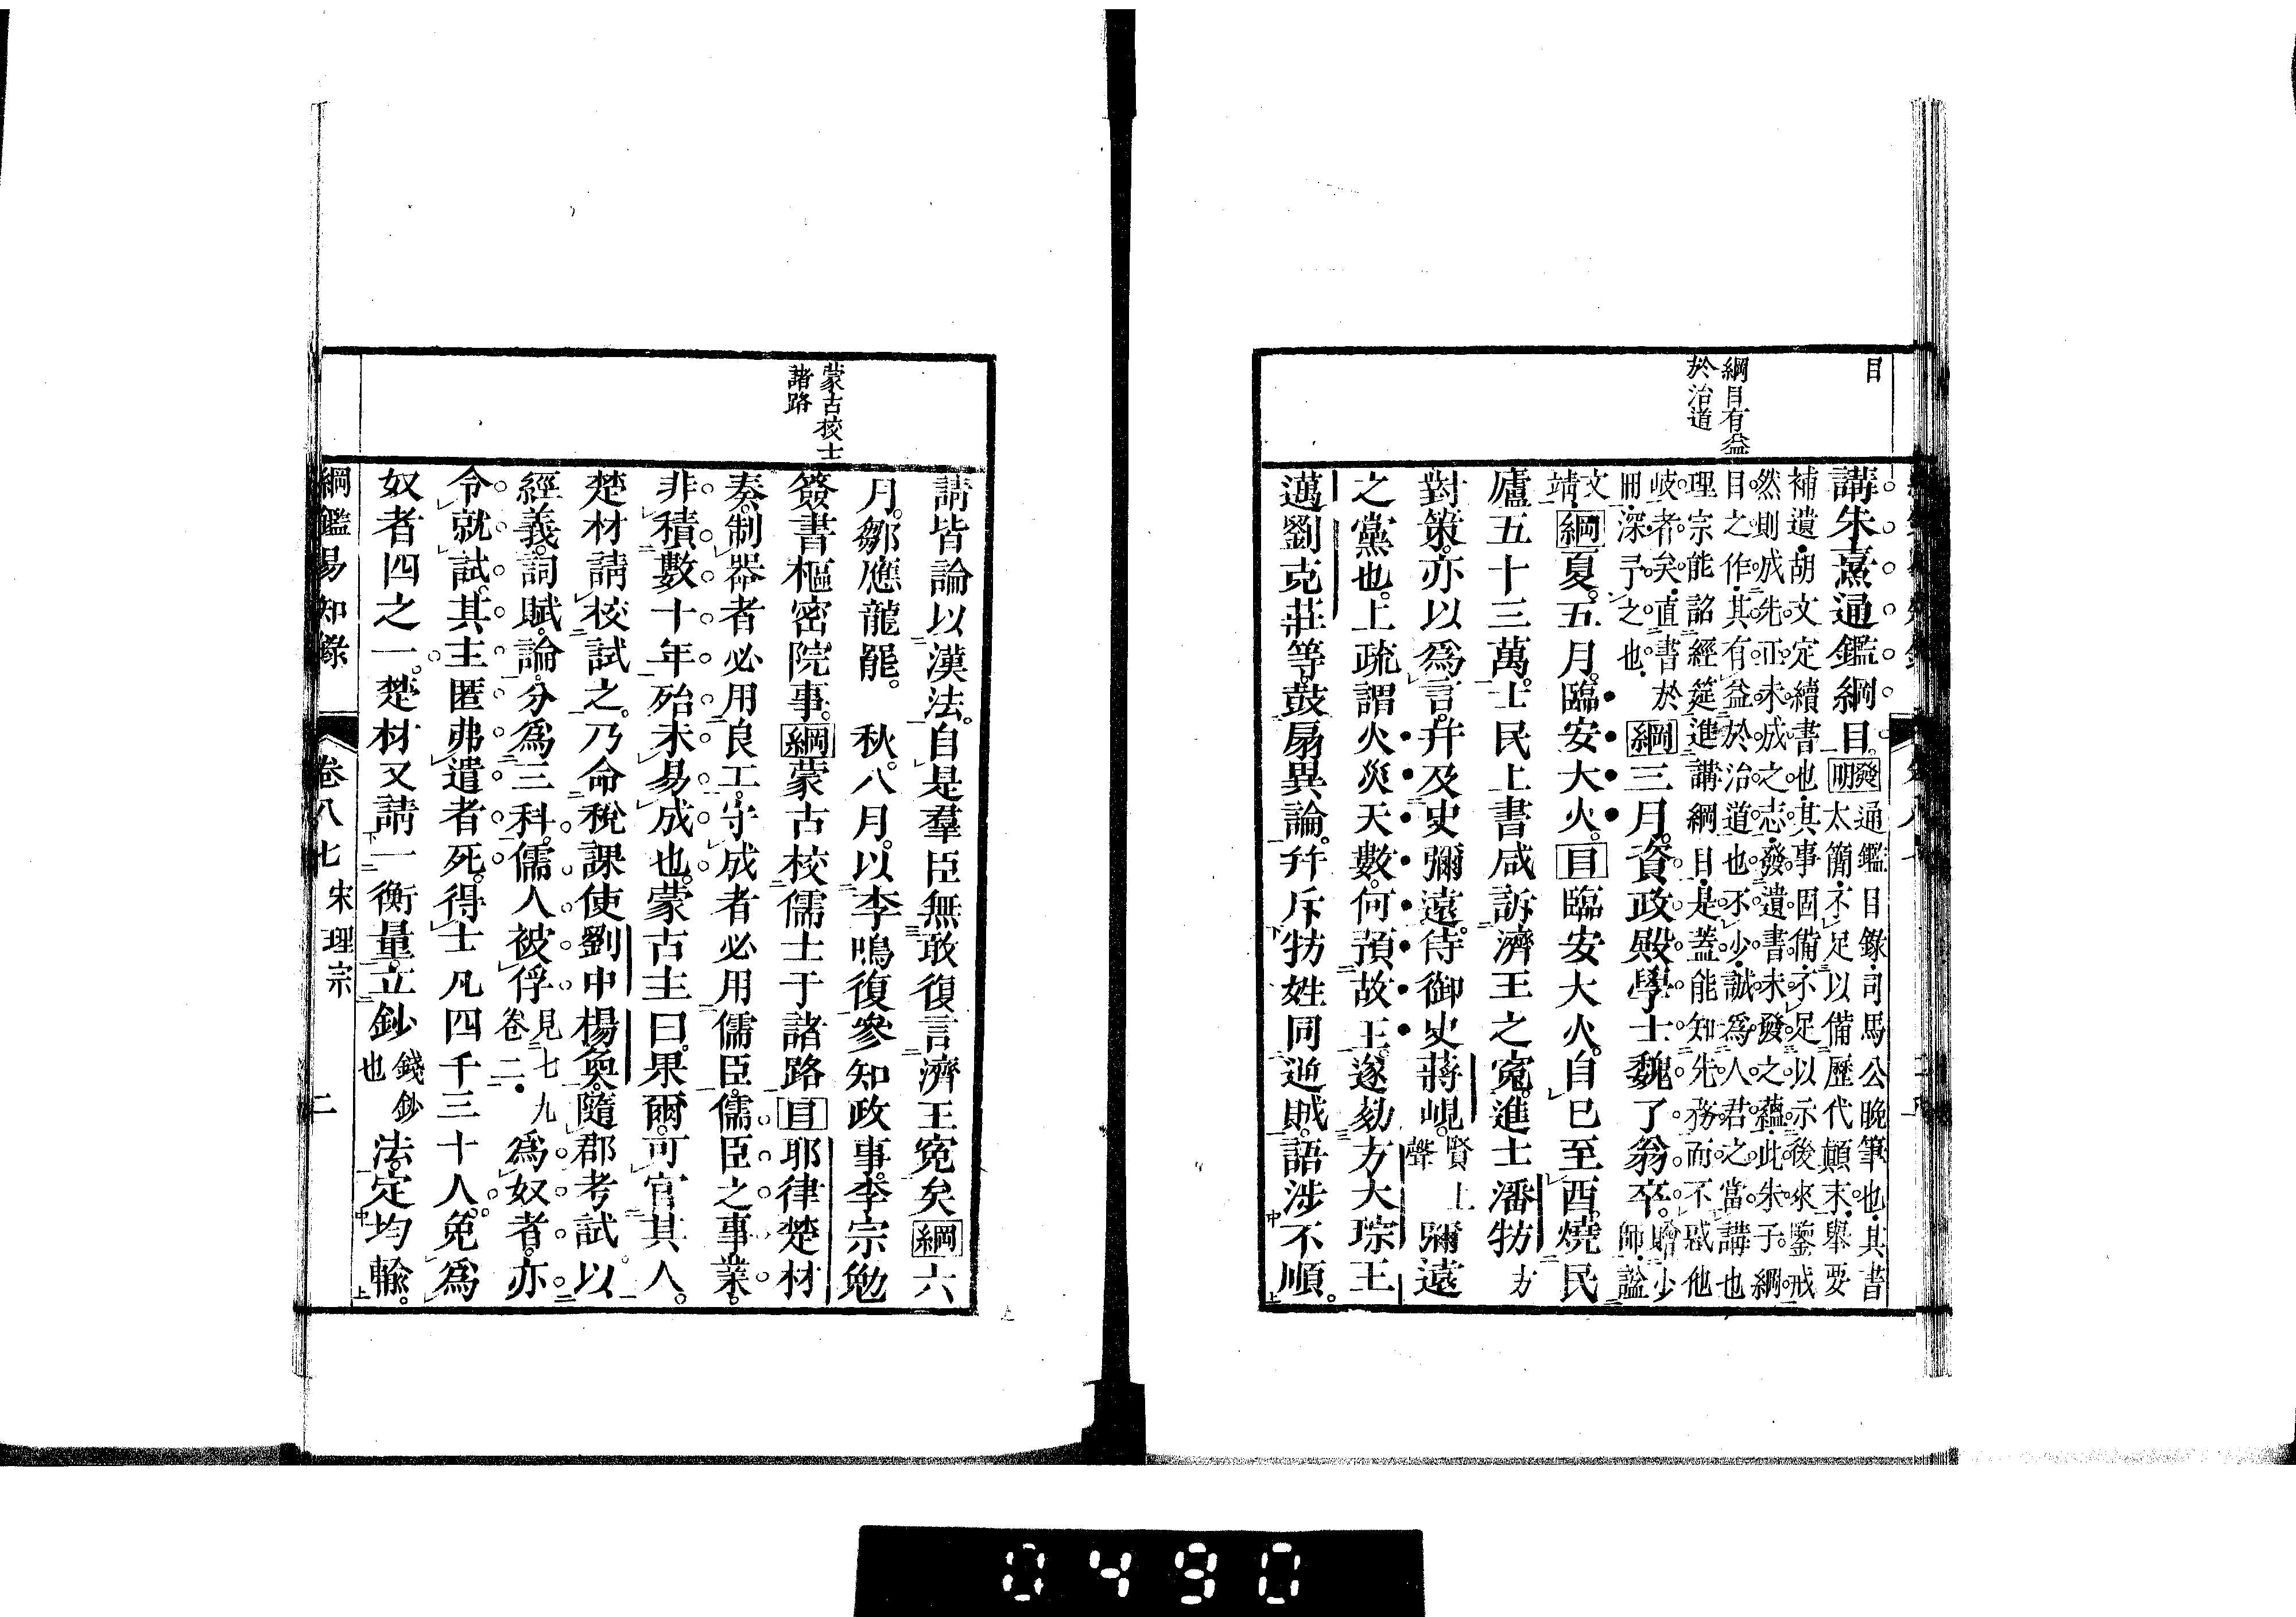 目
綱目有益
於治道
講朱熹通鑑綱目。發明通鑑目錄司馬公晚筆也其書
太簡不足以備歷代顛末舉要
補遺胡文定續書也其事固備不足以示後來鑒戒
然則成先正未成之志發遺書未發之蘊此朱子綱
目之作其有益於治道也不少誠爲人君之當講也
理宗能詔經筵進講綱目是蓋能知先務而不惑他
岐者矣直書於
冊深予之也
綱三月。資政殿學士魏了翁卒。贈少師謚
文靖
綱夏。五月。臨安大火。目臨安大火。自巳至酉。燒民
廬五十三萬。士民上書咸訴濟王之寃。進士潘牥方
對策。亦以爲言。幷及史彌遠。侍御史蔣峴。賢上聲彌遠
之黨也。上疏謂火災天數。何預故王。遂劾方大琮王
邁劉克莊等。鼓扇異論。幷斥牥姓同逆賊。語涉不順。
蒙古校士
諸路
請皆論以漢法。自是羣臣無敢復言濟王寃矣綱六
月。鄒應龍罷。秋。八月。以李鳴復參知政事。李宗勉
簽書樞密院事。綱蒙古校儒士于諸路目耶律楚材
奏。制器者必用良工。守成者必用儒臣。儒臣之事業。
非積數十年殆未易成也。蒙古主曰。果爾。可官其人。
楚材請校試之。乃命稅課使劉中楊奐。隨郡考試以
經義。詞賦。論。分爲三科。儒人被俘見七九卷二爲奴者。亦
令就試。其主匿弗遣者死。得士凡四千三十人。免爲
奴者四之一。楚材又請一衡量。立鈔錢鈔也法。定均輸。
綱鑑易知錄 卷八七 宋理宗 二